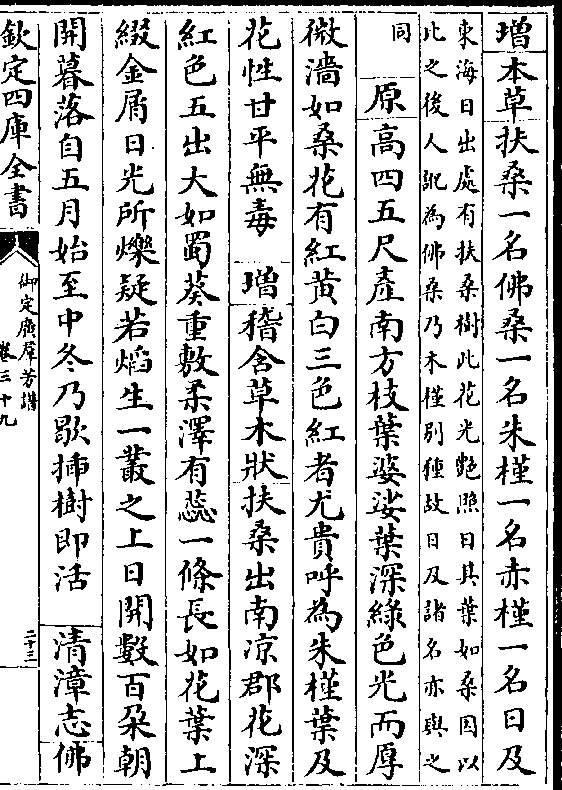 增本草扶桑一名佛桑一名朱槿一名赤槿一名日及
東海日出處有扶桑樹此花光艶照日其葉如桑因以
此之後人訛為佛桑乃木槿别種故日及諸名亦與之
同
原高四五尺產南方枝葉婆娑葉深綠色光而厚
微濇如桑花有紅黄白三色紅者尤貴呼為朱槿葉及
花性甘平無毒 增稽含草木狀扶桑出南凉郡花深
紅色五出大如蜀葵重敷柔澤有蕊一條長如花葉上
綴金屑日光所爍疑若焰生一叢之上日開數百朶朝
開暮落自五月始至中冬乃歇揷樹即活 清漳志佛
欽定四庫全書
御定廣羣芳譜
卷三十九
二十三